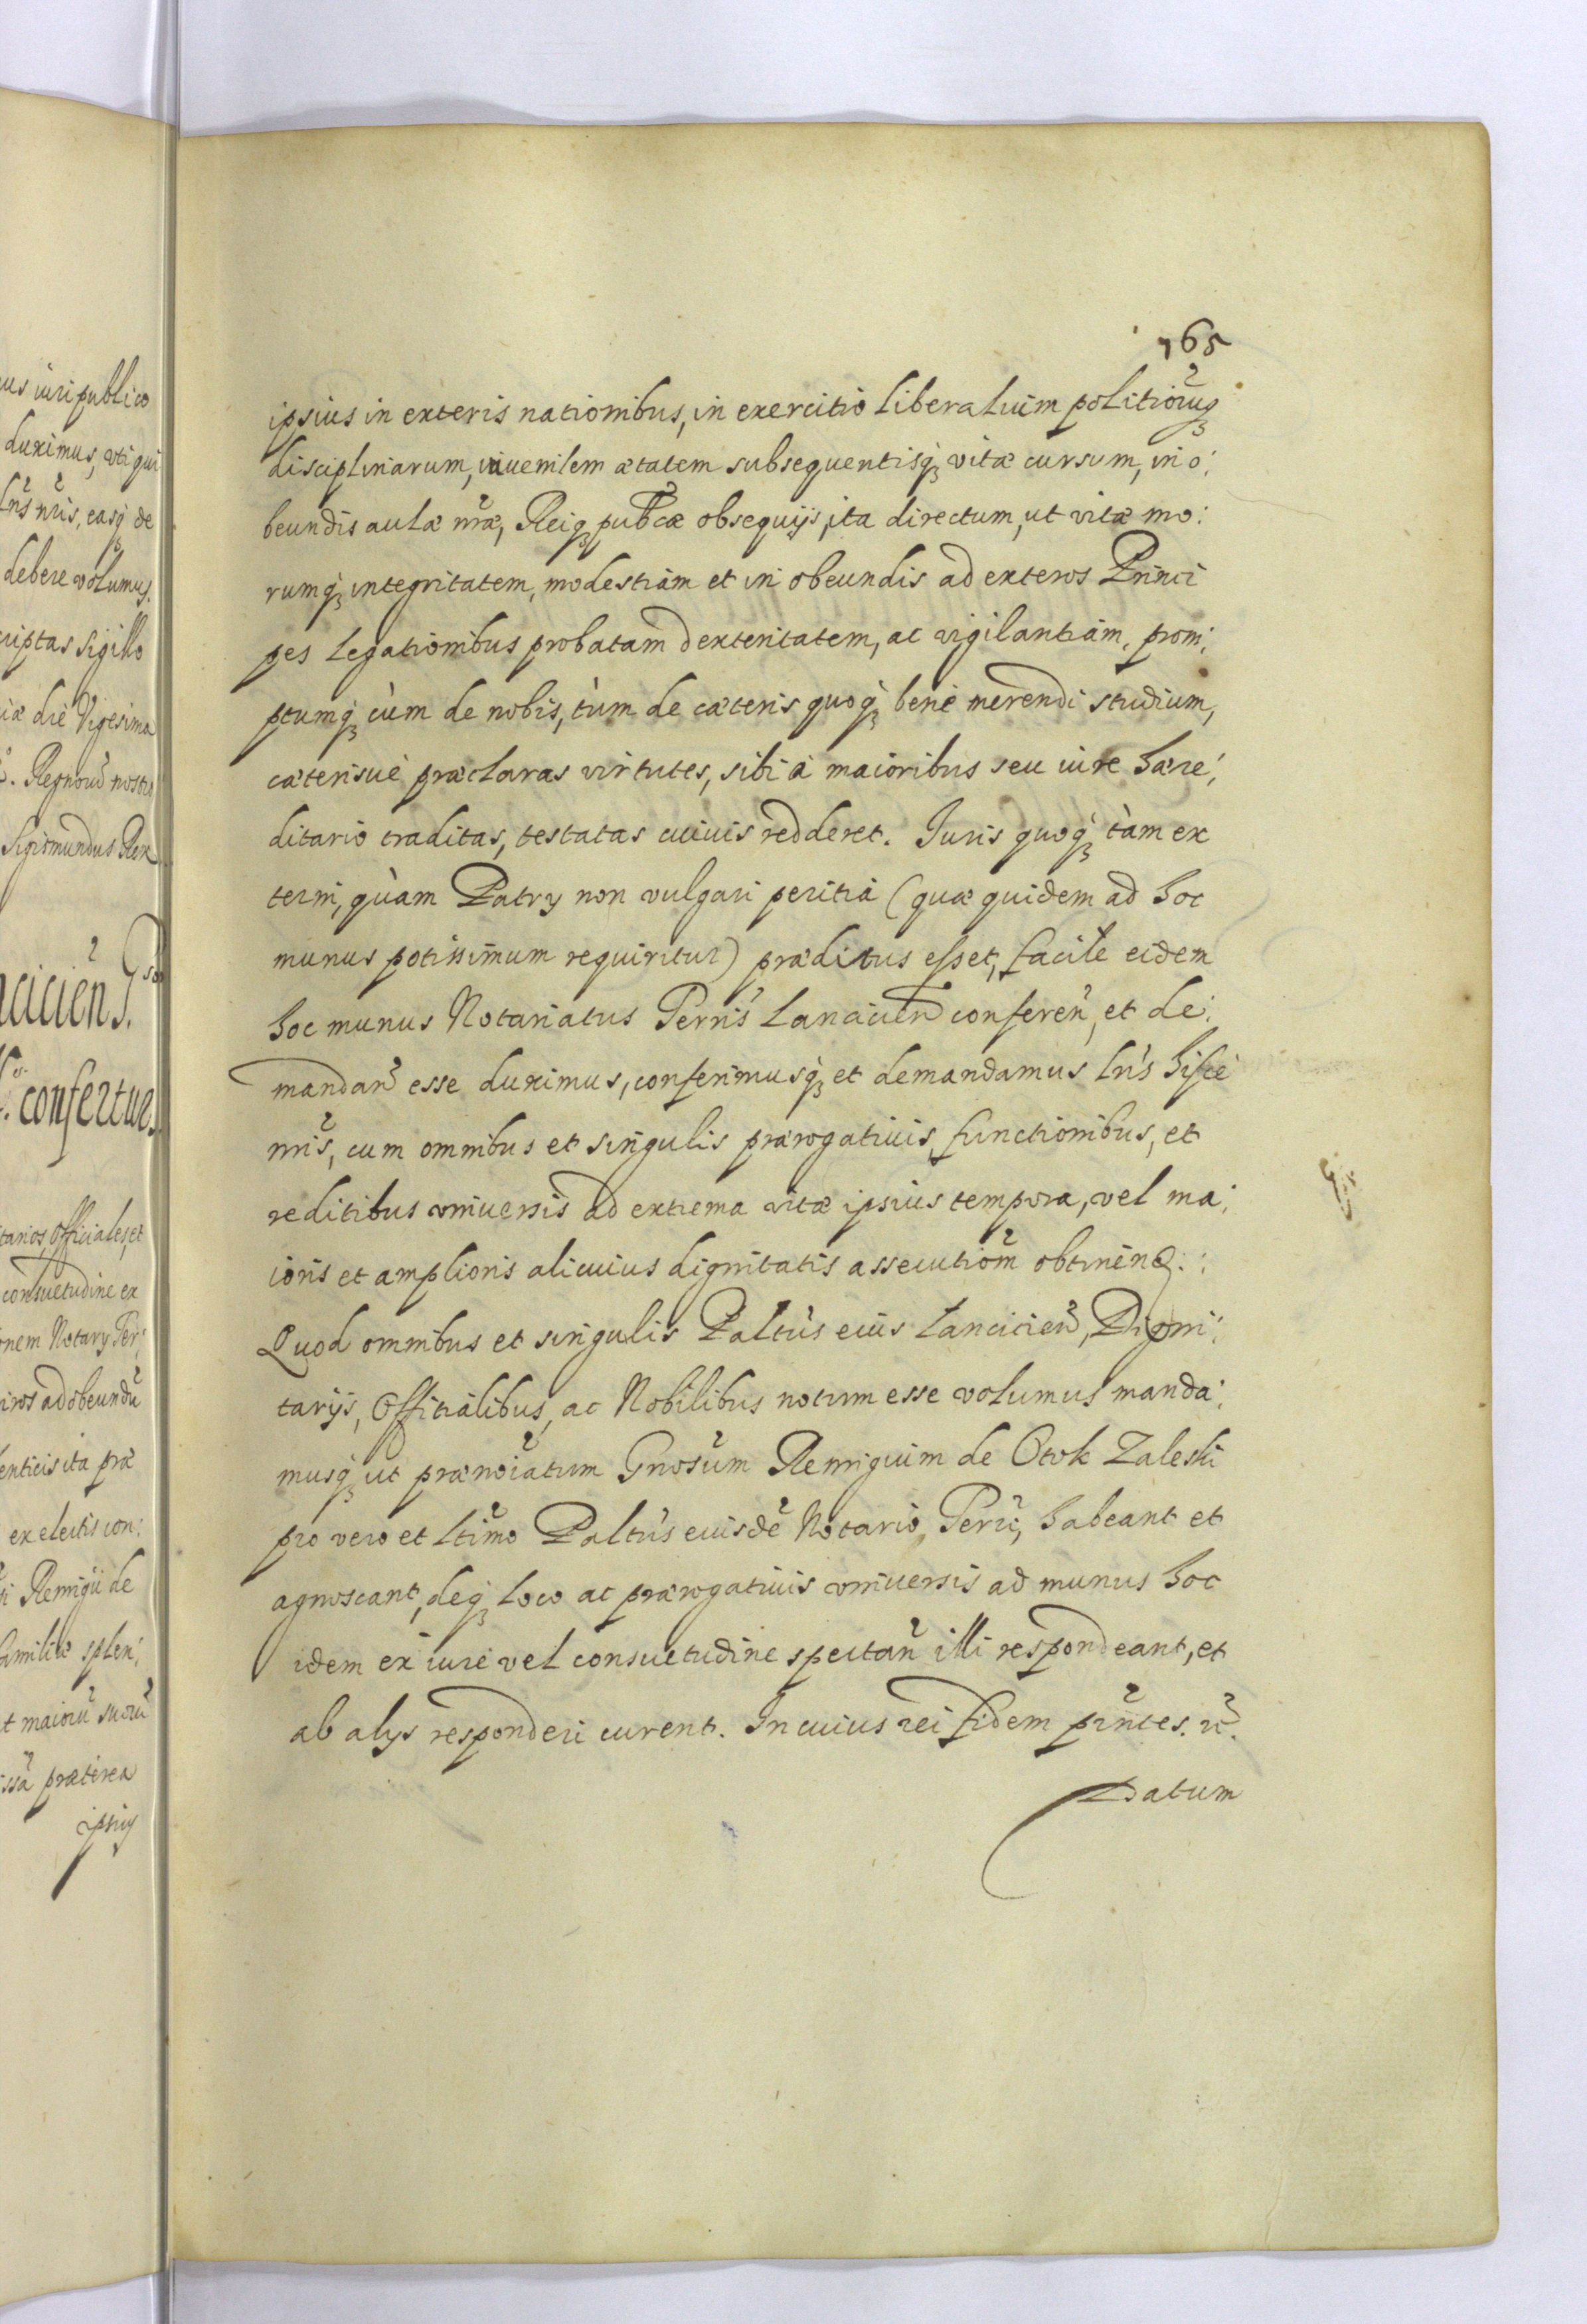 us iuri publico
duximus, vti qui
Lr̃is nr̃is, easq́ꝫ de
debere volumus.
criptas Sigillo
iæ die Vigesima
Regnorũ nostro
Sigismundus Rex
ncicień
confertur.
tarios, Officiales, et
consuetudine ex
onem Notarÿ Ter:
iros ad obeundũ
enticis ita præ
ex electis con:
i Remigii de
familiæ splen:
t maiorũ suorũ
issã præterea
ipsius
165
ipsius in exteris nationibus, in exercitio liberalium politiorũqꝫ
disciplinarum, iuuenilem ætatem subsequentisq́ꝫ vitæ cursum, in o:
beundis aulæ nr̃æ, Reiqꝫ pub̃cæ obsequijs, ita directum, ut vitæ mo:
rumq́ꝫ integritatem, modestiam et in obeundis ad exteros Princi
pes legationibus probatam dexteritatem, ac vigilantiam, prom:
ptumq́ꝫ cùm de nobis, tùm de cæteris quoq́ꝫ benè merendi studium,
cæterisuè præclaras virtutes, sibi à maioribus seu iure hære:
ditario traditas, testatas cuiuis redderet. Iuris quoq́ꝫ tàm ex
terni, quàm Patrÿ non vulgari peritiâ (quæ quidem ad hoc
munus potissimum requiritur) præditus esset, facile eidem
hoc munus Notariatus Terrŕis Lancicień conferen̑, et de:
mandan̑ esse duximus, conferimusq́ꝫ et demandamus Lr̃is hisce
nr̃is, cum omnibus et singulis prærogatiuis, functionibus, et
reditibus vniuersis ad extrema vitæ ipsius tempora, vel ma:
ioris et amplioris alicuius dignitatis assecutiom̃ obtinend:
Quod omnibus et singulis Palt́us eius Lancicień, Digni:
tarijs, Officialibus, ac Nobilibus notum esse volumus manda:
musq́ꝫ ut prænoĩatum Gnosũm Remigium de Otok Zaleski
pro vero et Ltĩmo Palt́us eiusdẽ Notario, Terr̃, habeant et
agnoscant, deq́ꝫ loco ac prærogatiuis vniuersis ad munus hoc
idem ex iure vel consuetudine spectan̑ illi respondeant, et
ab alÿs responderi curent. In cuius rei fidem pr̃ntes. &c̃.
Datum